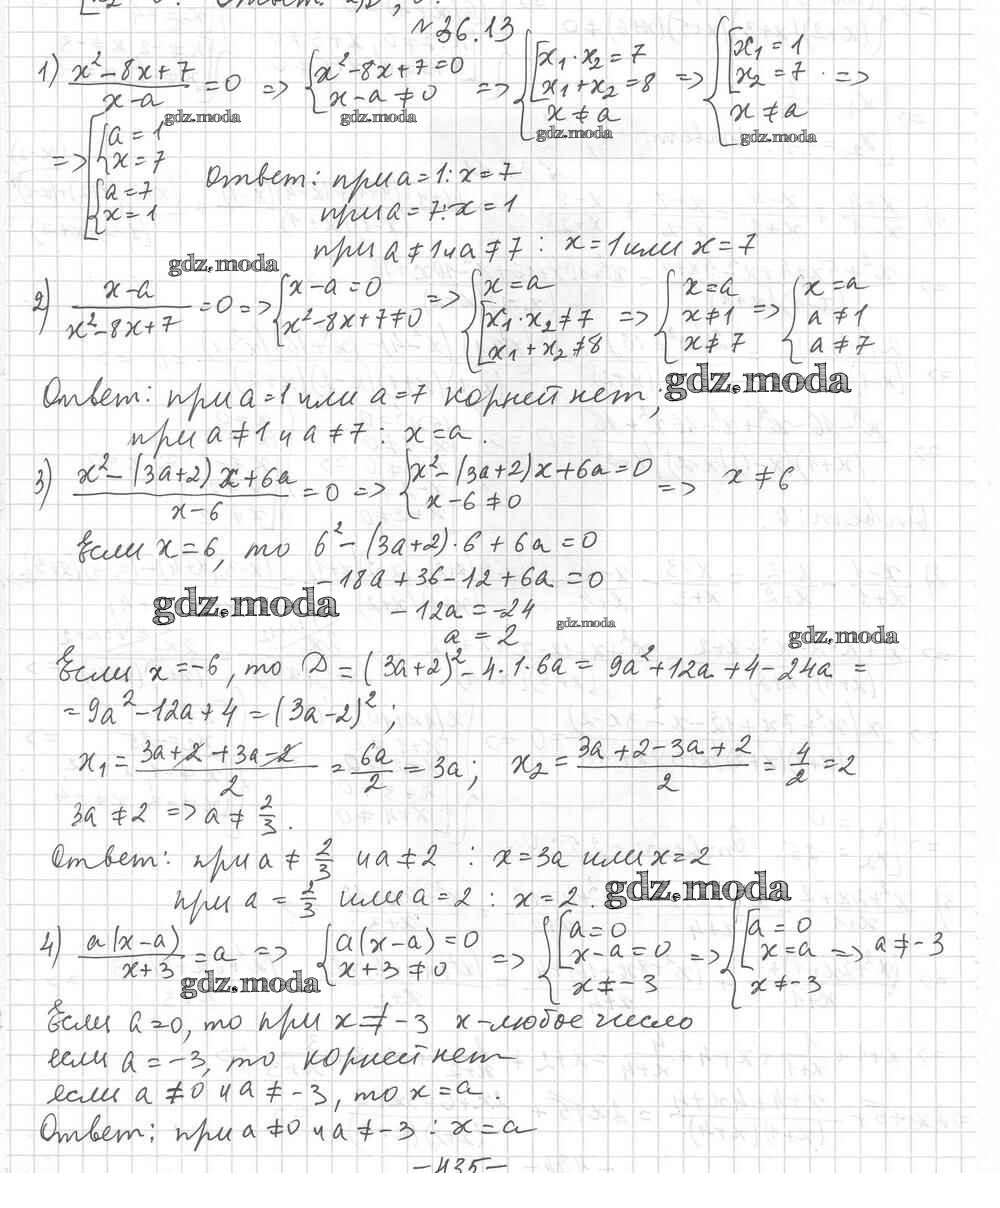 №36.13
1) (x²-8x+7)/(x-a) = 0 => { x²-8x+7=0; x-a≠0 => { [ x₁·x₂=7; x₁+x₂=8; x≠a => { [ x₁=1; x₂=7; x≠a . =>
gdz.moda gdz.moda gdz.moda gdz.moda
=> [ { a=1; x=7; { a=7; x=1
Ответ: при a=1: x=7
при a=7: x=1
при a≠1 и a≠7 : x=1 или x=7
gdz.moda
2) (x-a)/(x²-8x+7) = 0 => { x-a=0; x²-8x+7≠0 => { x=a; [ x₁·x₂≠7; x₁+x₂≠8 => { x=a; x≠1; x≠7 => { x=a; a≠1; a≠7
gdz.moda
Ответ: при a=1 или a=7 корней нет;
при a≠1 и a≠7 : x=a.
3) (x²-(3a+2)x+6a)/(x-6) = 0 => { x²-(3a+2)x+6a=0; x-6≠0 => x≠6
Если x=6, то 6²-(3a+2)·6+6a=0
-18a+36-12+6a=0
gdz.moda
-12a=-24
gdz.moda
a=2
gdz.moda
Если x=-6, то D=(3a+2)²-4·1·6a=9a²+12a+4-24a=
=9a²-12a+4=(3a-2)²;
x₁=(3a+2+3a-2)/2=6a/2=3a; x₂=(3a+2-3a+2)/2=4/2=2
3a≠2 => a≠2/3.
Ответ: при a≠2/3 и a≠2 : x=3a или x=2
при a=2/3 или a=2 : x=2.
gdz.moda
4) a(x-a)/(x+3)=a => { a(x-a)=0; x+3≠0 => { [ a=0; x-a=0; x≠-3 => { [ a=0; x=a; x≠-3 => a≠-3
gdz.moda
Если a=0, то при x≠-3 x-любое число
если a=-3, то корней нет
если a≠0 и a≠-3, то x=a.
Ответ: при a≠0 и a≠-3 : x=a
-435-